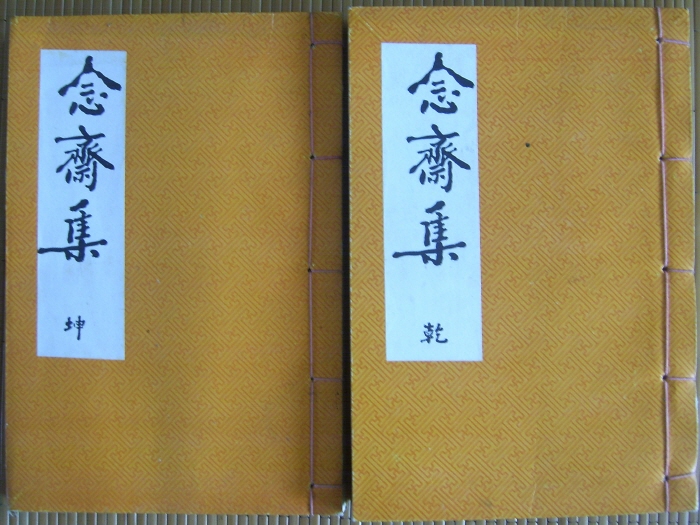 念齋集
乾
念齋集
坤